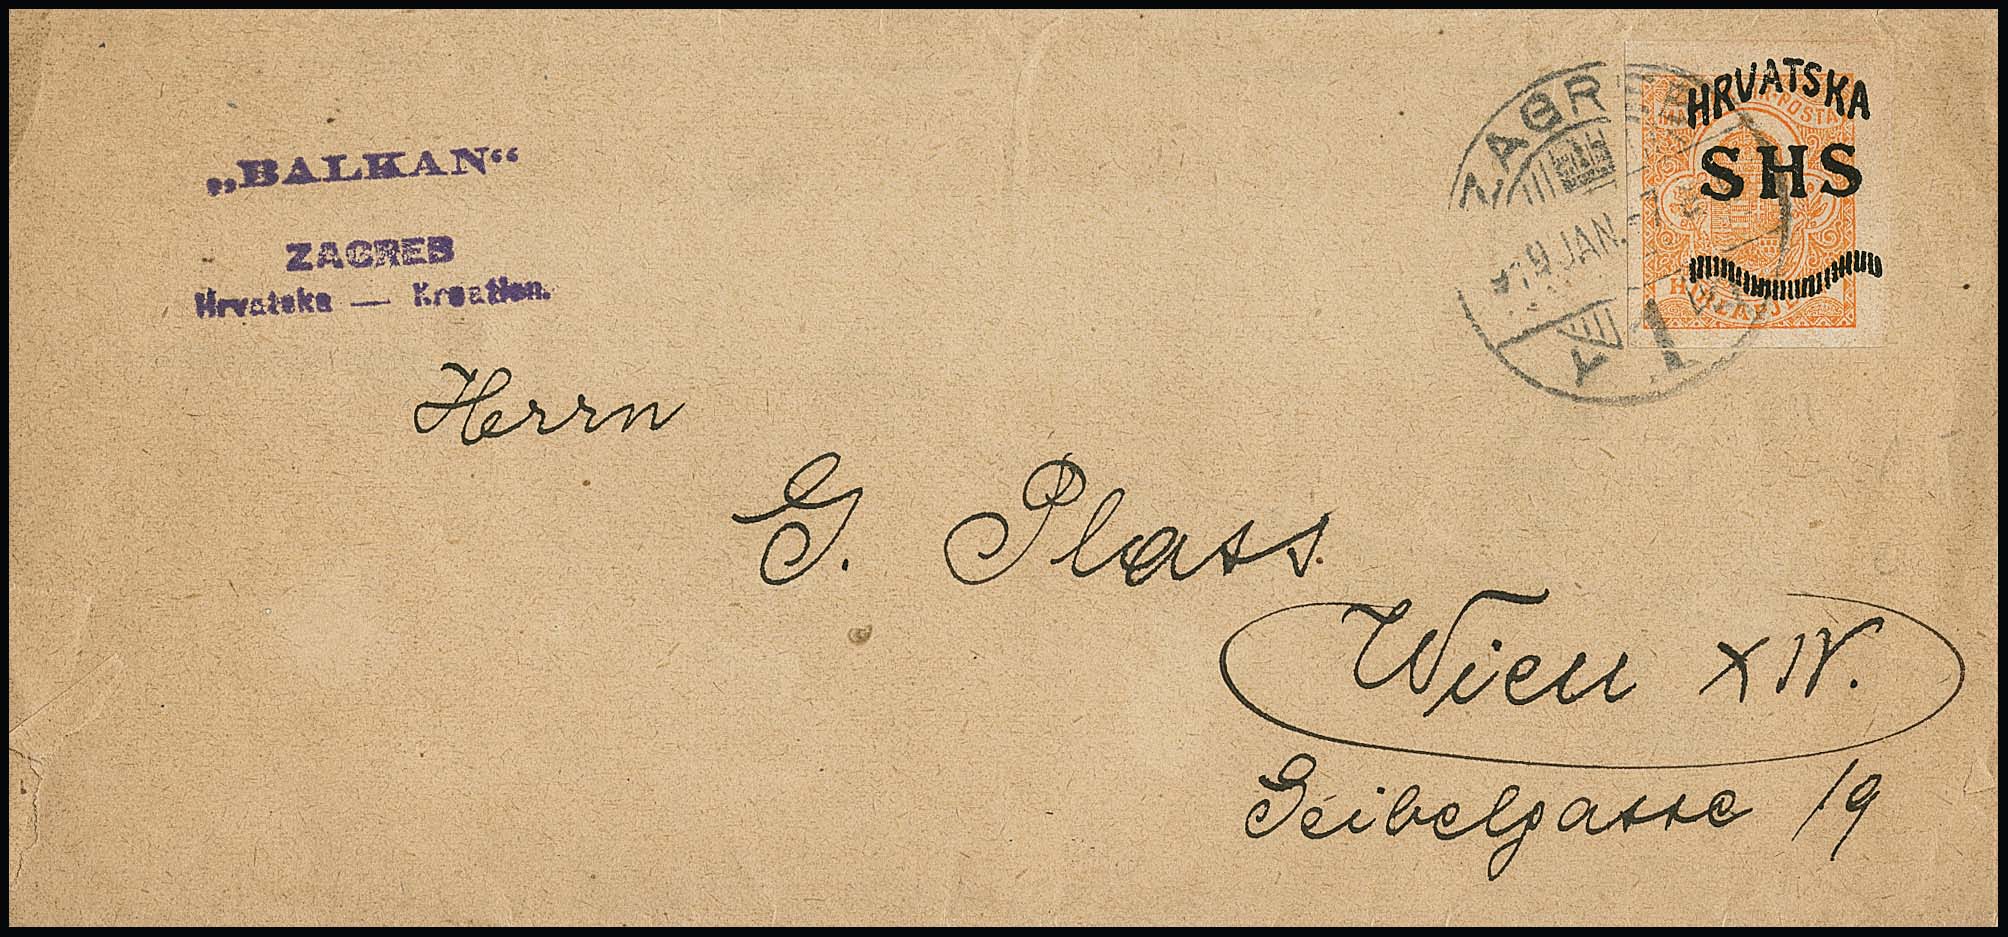 „BALKAN“
ZAGREB
Hrvatska — Kroatien.
ZAGREB
19 JAN.
1
HRVATSKA
SHS
Herrn
G. Plass.
Wien XIV.
Geibelgasse 19